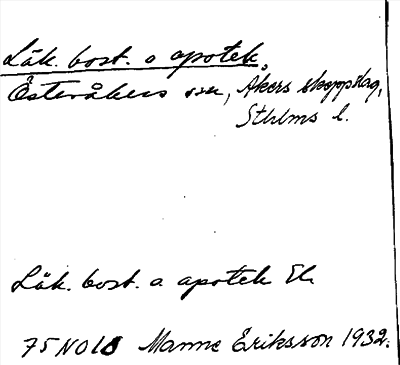 Läk. bost. o apotek.
Österåkers sn, Åkers skeppslag,
Sthlms l.
Läk. bost. o apotek Eh
75 NO Manne Eriksson 1932.